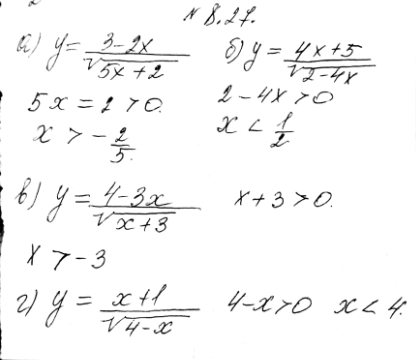 № 8.27.
а) y = (3-2x)/√(5x+2) б) y = (4x+5)/√(2-4x)
5x = 2 > 0. 2-4x > 0
x > -2/5. x < 1/2
в) y = (4-3x)/√(x+3) x+3 > 0.
x > -3
г) y = (x+1)/√(4-x) 4-x > 0 x < 4.